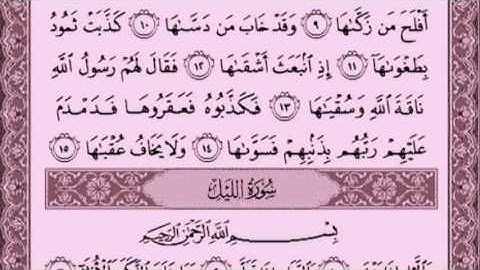 أَفْلَحَ مَن زَكَّىٰهَا ٩ وَقَدْ خَابَ مَن دَسَّىٰهَا ١٠ كَذَّبَتْ ثَمُودُ
بِطَغْوَىٰهَآ ١١ إِذِ ٱنۢبَعَثَ أَشْقَىٰهَا ١٢ فَقَالَ لَهُمْ رَسُولُ ٱللَّهِ
نَاقَةَ ٱللَّهِ وَسُقْيَٰهَا ١٣ فَكَذَّبُوهُ فَعَقَرُوهَا فَدَمْدَمَ
عَلَيْهِمْ رَبُّهُم بِذَنۢبِهِمْ فَسَوَّىٰهَا ١٤ وَلَا يَخَافُ عُقْبَٰهَا ١٥
سُورَةُ ٱللَّيْلِ
بِسْمِ ٱللَّهِ ٱلرَّحْمَٰنِ ٱلرَّحِيمِ